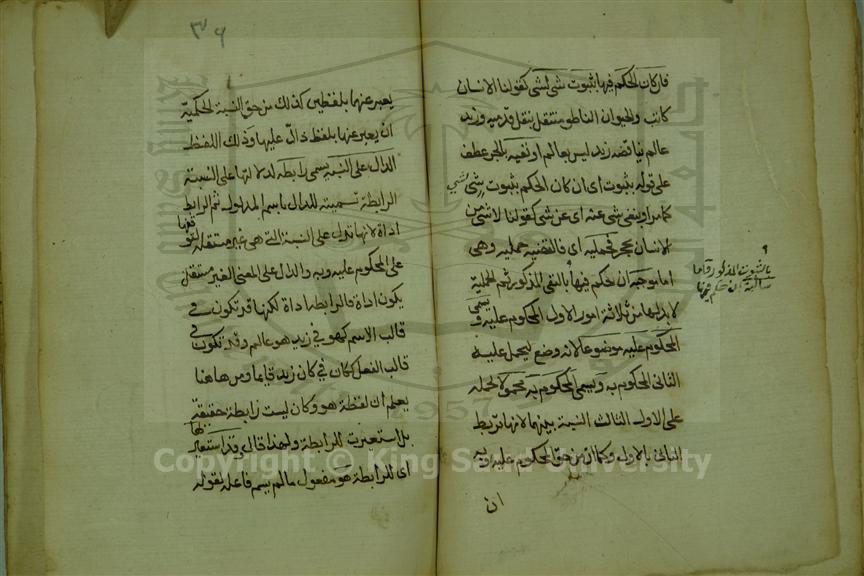 فان كان الحكم فيها بثبوت شئ لشئ كقولنا الانسان
كاتب والحيوان الناطق منتقل بنقل قدميه وزيد
عالم يناقضه زيد ليس بعالم او نفيه بالجر عطف
على قوله بثبوت اى ان كان الحكم بثبوت شئ لشئ
كما مر او بنفى شئ عنه اى عن شئ كقولنا لا شئ من
الانسان بحجر فحملية اى فالقضية حملية وهى
اما موجبة ان حكم فيها بالنفى المذكور ثم الحملية
بالثبوت المذكور واما
سالبة ان حكم فيها
لا بد لها من ثلاثة امور الاول المحكوم عليه ويسمى
المحكوم عليه موضوعا لانه وضع ليحمل عليه
الثانى المحكوم به ويسمى المحكوم به محمولا لحمله
على الاول الثالث النسبة بينهما لانها تربط
الثانى بالاول وكما ان من حق المحكوم عليه وبه
ان
٣٦
يعبر عنهما بلفظين كذلك من حق النسبة الحكمية
ان يعبر عنها بلفظ دال عليها وذلك اللفظ
الدال على النسبة يسمى رابطة لدلالتها على النسبة
الرابطة تسمية للدال باسم المدلول ثم الرابط
اداة لانها تدل على النسبة التى هى غير مستقلة لتوقفها
على المحكوم عليه وبه والدال على المعنى الغير مستقل
يكون اداة فالرابطة اداة لكنها قد تكون فى
قالب الاسم كهو فى زيد هو عالم وقد تكون فى
قالب الفعل ككان فى كان زيد قايما ومن هاهنا
يعلم ان لفظة هو وكان ليست رابطة حقيقة
بل استعيرت للرابطة ولهذا قال وقد استعير لها
اى للرابطة هو مفعول ما لم يسم فاعله لقوله
Copyright © King Saud University
1957